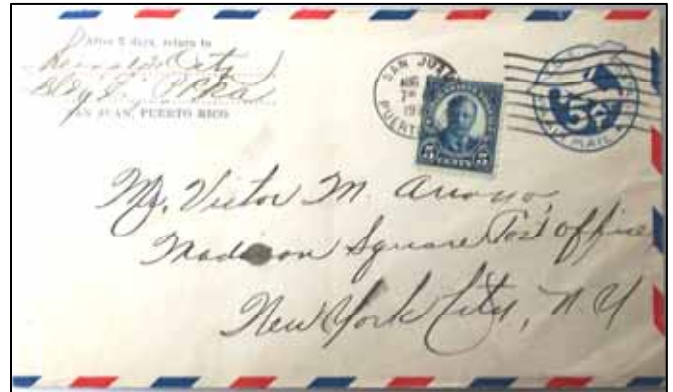 After 5 days, return to
City
Bldg
SAN JUAN, PUERTO RICO
SAN JUAN
AUG
PUERT
5 CENTS 5
5¢
AIR MAIL
Mr. Victor M. Arroyo,
Madison Square Post Office
New York City, N.Y